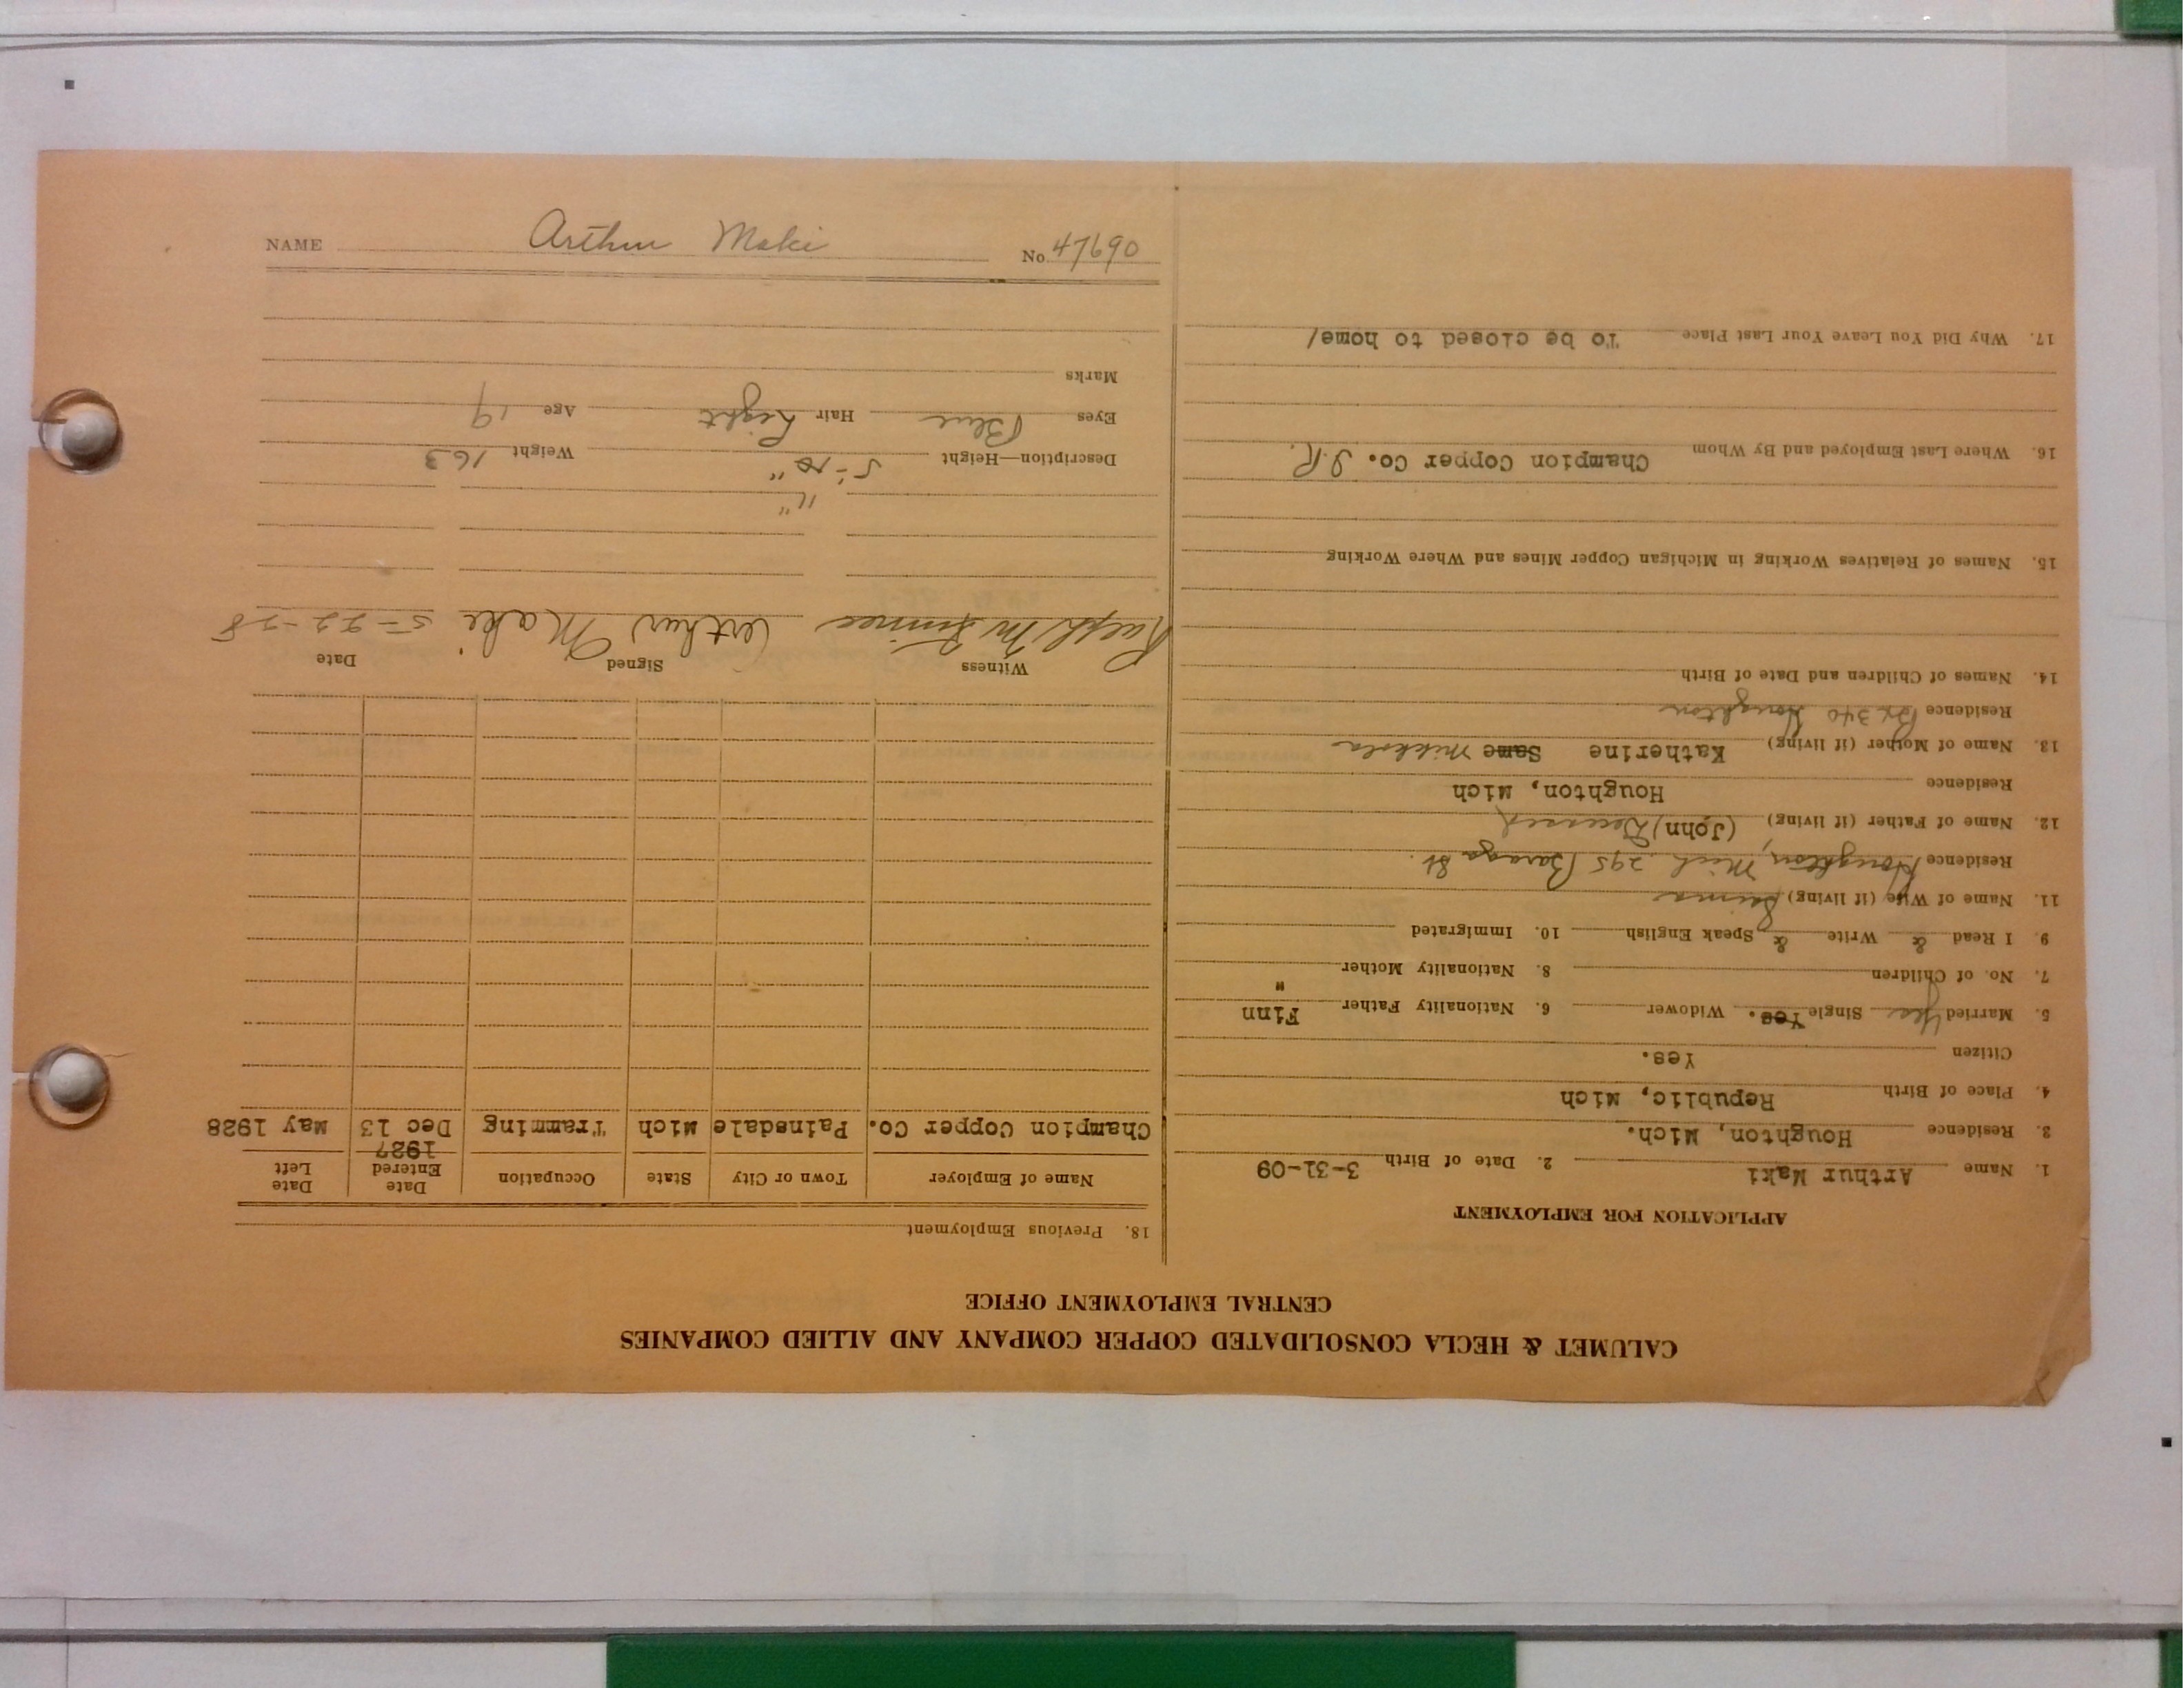 NAME Arthur Maki No. 47690
CALUMET & HECLA CONSOLIDATED COPPER COMPANY AND ALLIED COMPANIES
CENTRAL EMPLOYMENT OFFICE
APPLICATION FOR EMPLOYMENT
1. Name Arthur Maki 2. Date of Birth 3-31-09
3. Residence Houghton, Mich.
4. Place of Birth Republic, Mich
Citizen Yes.
5. Married Yes Single Yes. Widower 6. Nationality Father Finn
7. No. of Children 8. Nationality Mother "
9. I Read & Write & Speak English 10. Immigrated
11. Name of Wife (if living)
Residence Houghton, Mich 295 Baraga St.
12. Name of Father (if living) (John) Deceased
Residence Houghton, Mich
13. Name of Mother (if living) Katherine Same Mikkola
Residence Bx 340 Houghton
14. Names of Children and Date of Birth
15. Names of Relatives Working in Michigan Copper Mines and Where Working
16. Where Last Employed and By Whom Champion Copper Co. J.R.
17. Why Did You Leave Your Last Place To be closed to home/
18. Previous Employment
Name of Employer Town or City State Occupation Date Entered Date Left
1927
Champion Copper Co. Painsdale Mich Tramming Dec 13 May 1928
Witness Signed Date
Ralph Arthur Maki 5-22-28
11"
Description—Height 5'-10" Weight 163
Eyes Blue Hair Light Age 19
Marks